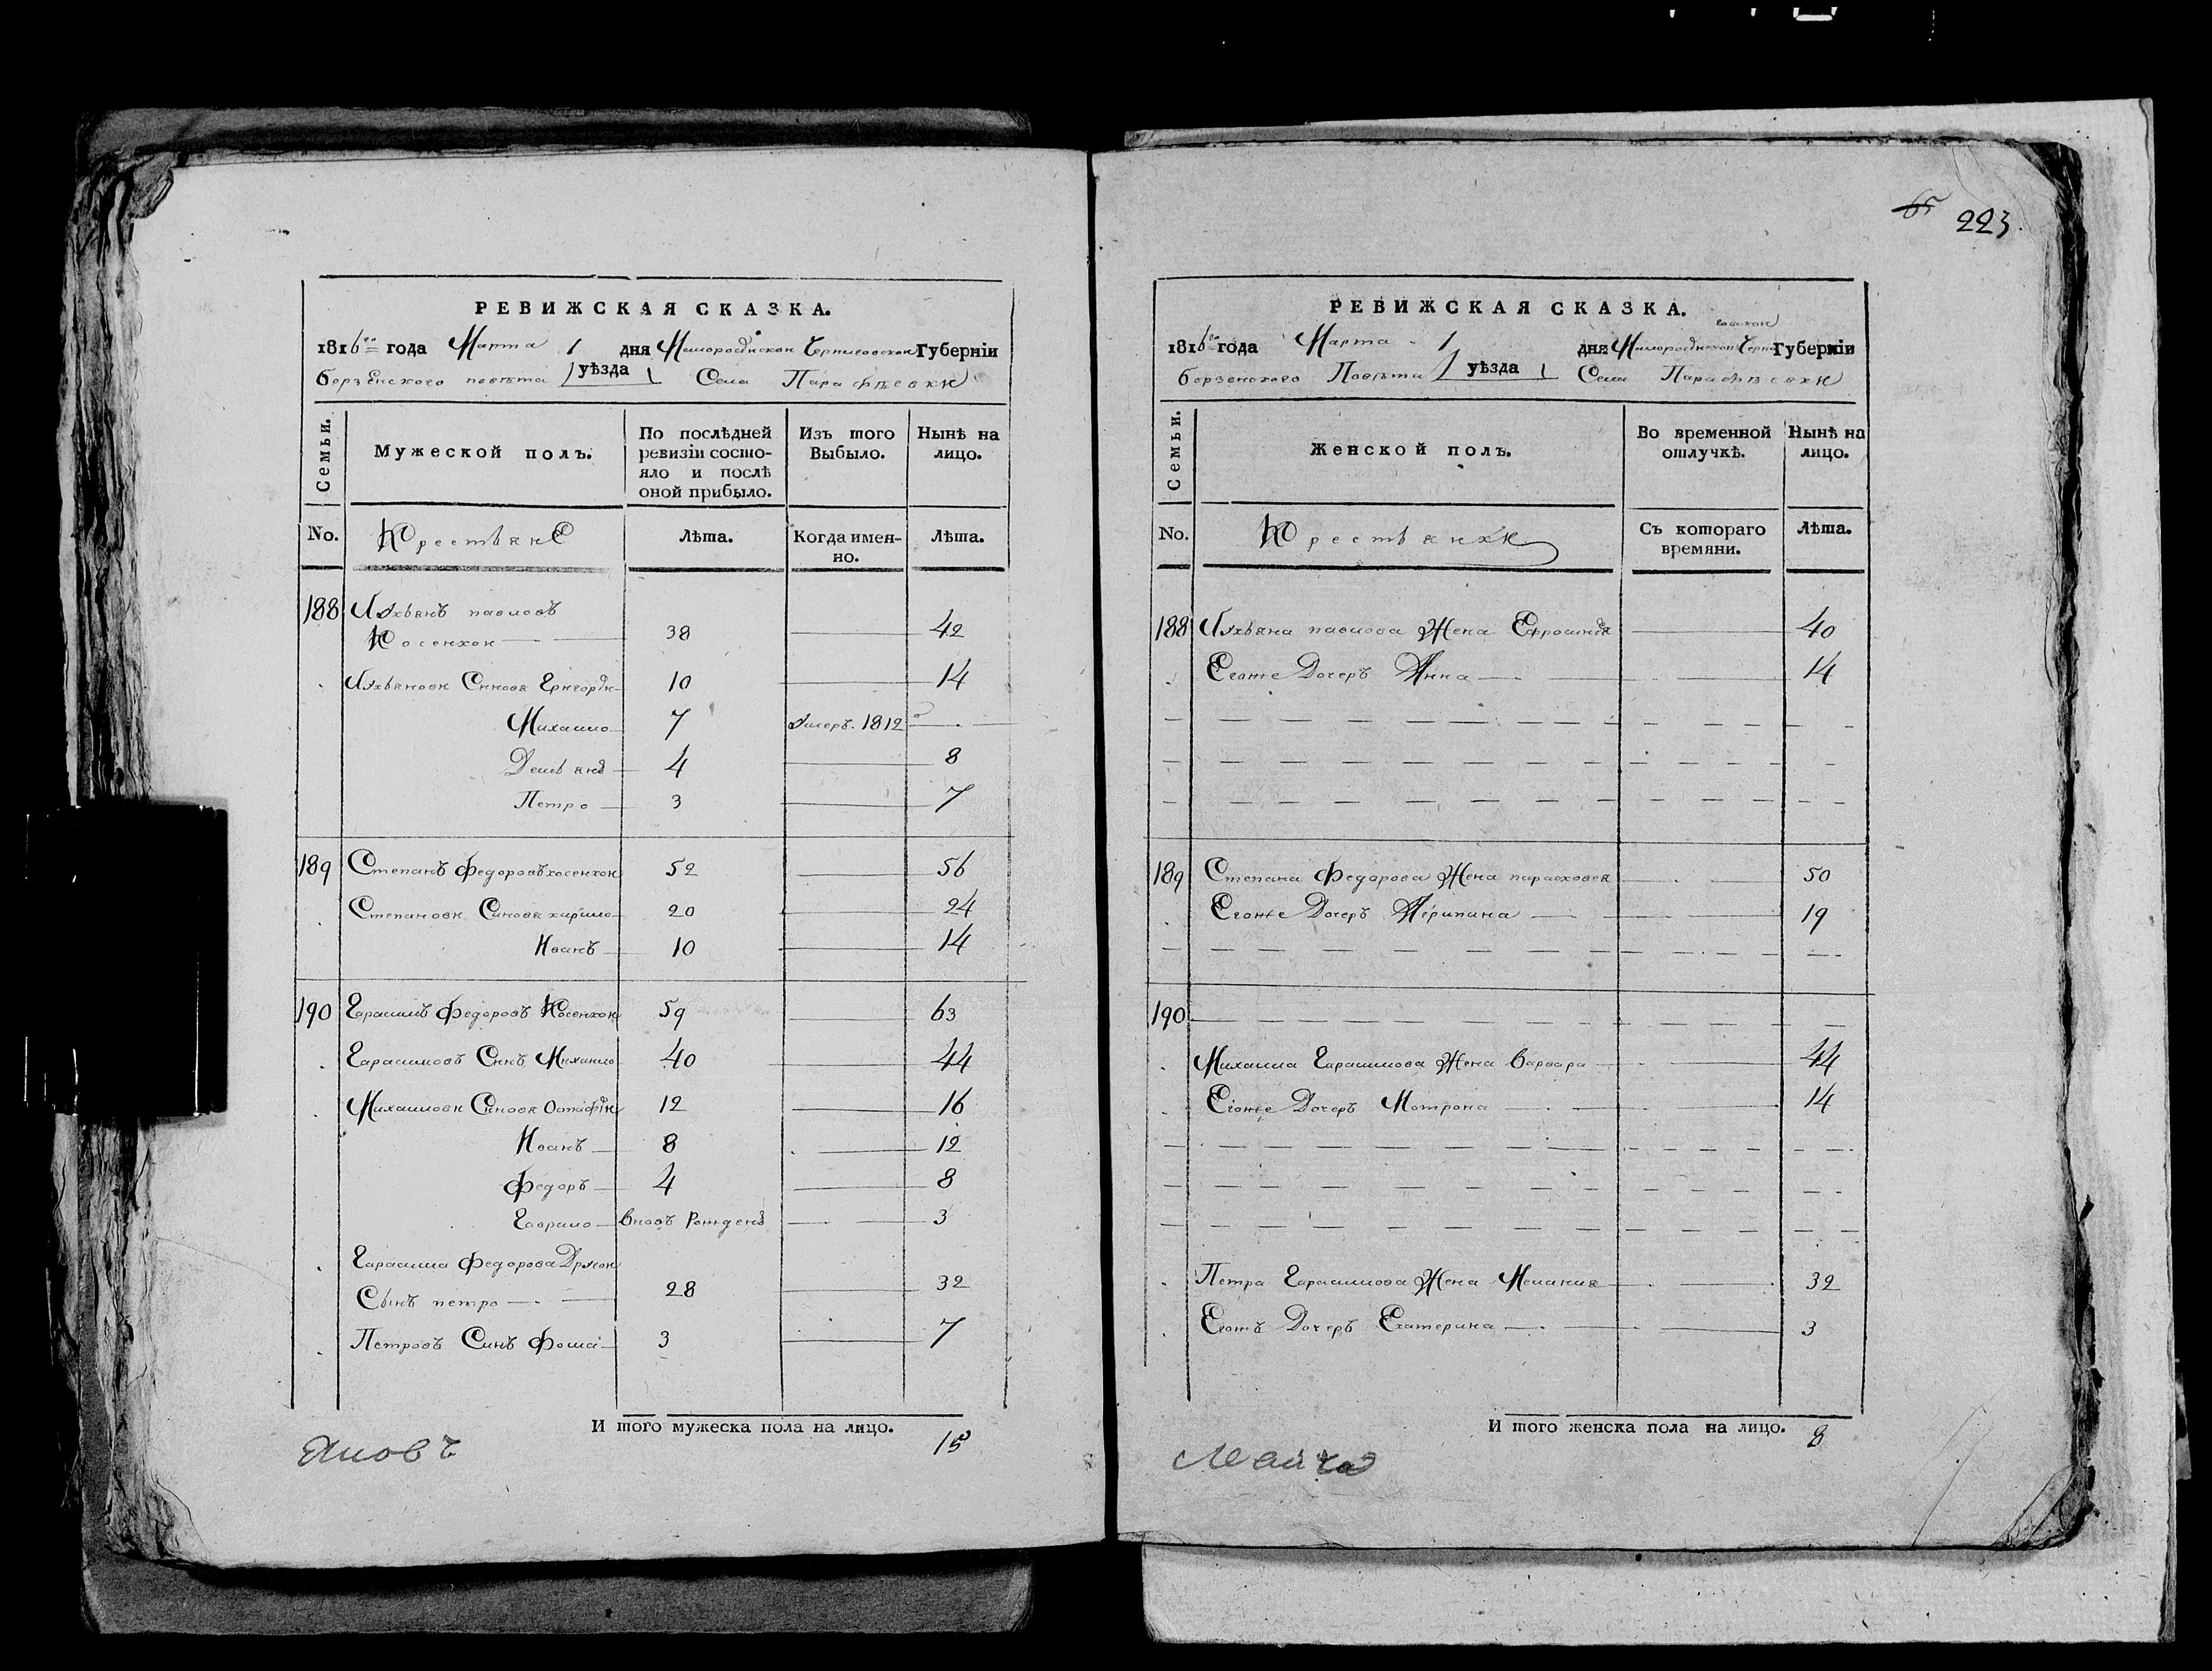 РЕВИЖСКАЯ СКАЗКА.
1816го года Марта 1 дня Малоросійской Черниговской Губерніи
борзенского повѣта уѣзда Села Парафѣевки
Семьи.
Мужеской полъ.
По послѣдней ревизіи состояло и послѣ оной прибыло.
Изъ того Выбыло.
Нынѣ на лицо.
No.
Крестьяне
Лѣта.
Когда именно.
Лѣта.
188 Лукьянъ павловъ
Косенкон 38 42
Лукьянови Синовя Григорій 10 14
Михаило 7 Умеръ. 1812
Демьянъ 4 8
Петро 3 7
189 Степанъ Федоровъ косенкон 52 56
Степанови Синовя кирило 20 24
Иванъ 10 14
190 Гарасимъ Федоровъ Косенкон 59 63
Гарасимовъ Синъ Михаило 40 44
Михаилови Синовя Остафій 12 16
Иванъ 8 12
Федоръ 4 8
Гаврило вновъ Рожденъ 3
Гарасима Федорова Другой
Сынъ петро 28 32
Петровъ Синъ Фома 3 7
И того мужеска пола на лицо. 15
65 223.
РЕВИЖСКАЯ СКАЗКА.
1816го года Марта 1 дня Малоросійской Черниговской Губерніи
борзенского Повѣта уѣзда Села Парафѣевки
Семьи.
Женской полъ.
Во временной отлучкѣ.
Нынѣ на лицо.
No.
Крестьянки
Съ котораго времяни.
Лѣта.
188 Лукьяна павлова Жена Ефросиния 40
Егоже Дочеръ Анна 14
189 Степана Федорова Жена парасковея 50
Егоже Дочеръ Агрипина 19
190
Михаила Гарасимова Жена Варвара 44
Егоже Дочеръ Мотрона 14
Петра Гарасимова Жена Мелания 32
Егожъ Дочеръ Екатерина 3
И того женска пола на лицо. 8